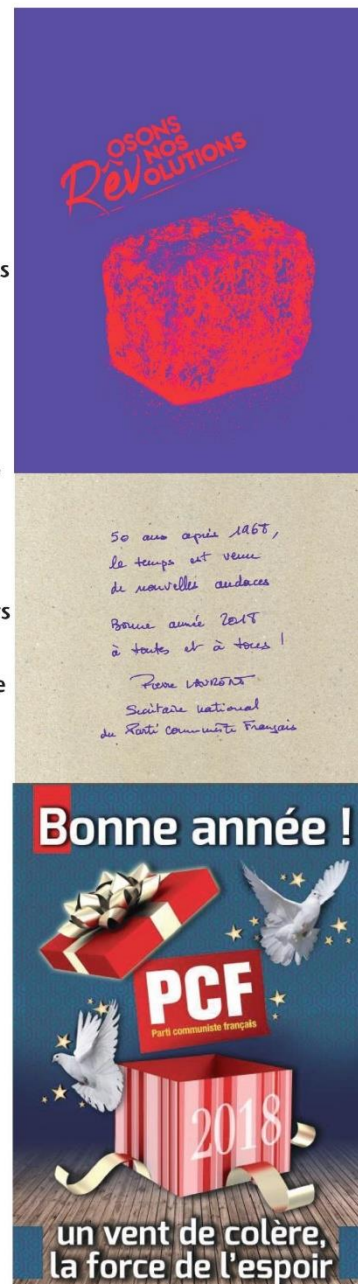 OSONS
NOS
RêvOLUTIONS
s
rs
e
50 ans après 1968,
le temps est venu
de nouvelles audaces
Bonne année 2018
à toutes et à tous !
Pierre LAURENT
Secrétaire national
du Parti communiste Français
Bonne année !
PCF
Parti communiste français
2018
un vent de colère,
la force de l'espoir